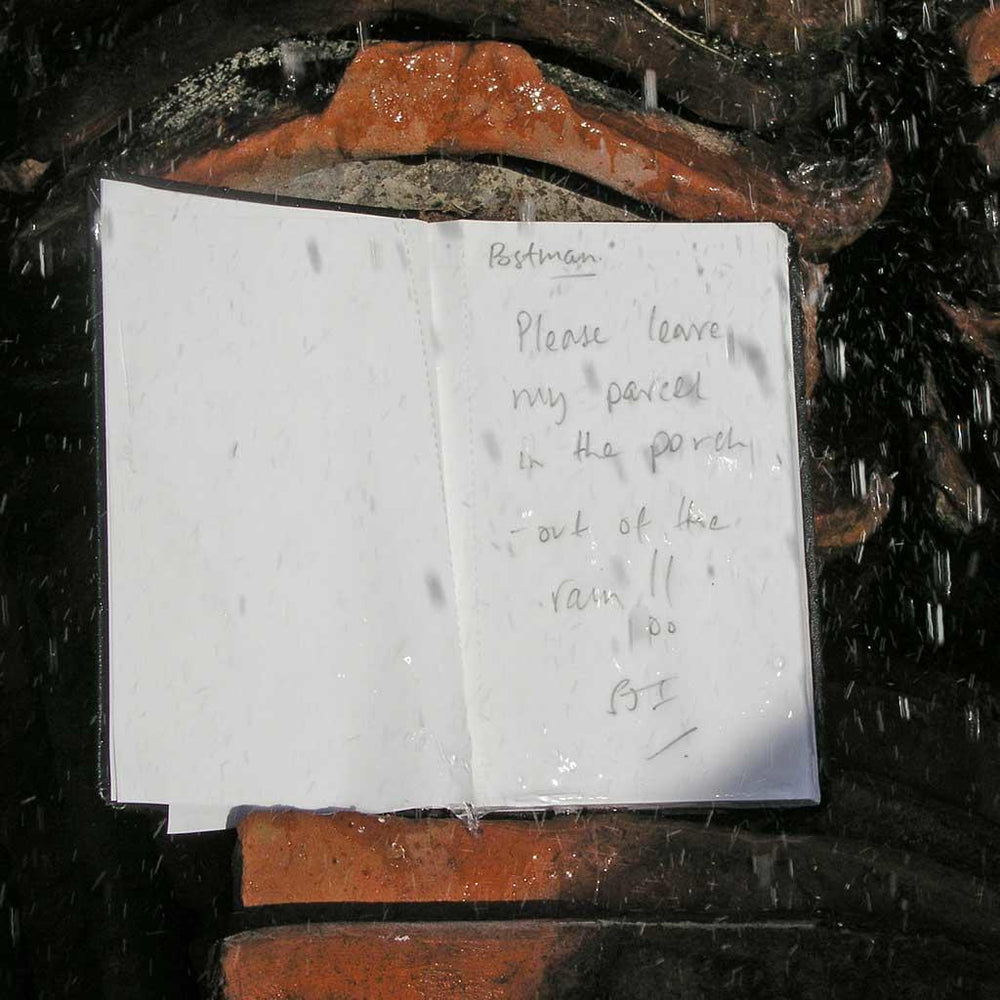 Postman.
Please leave
my parcel
in the porch
- out of the
rain !!